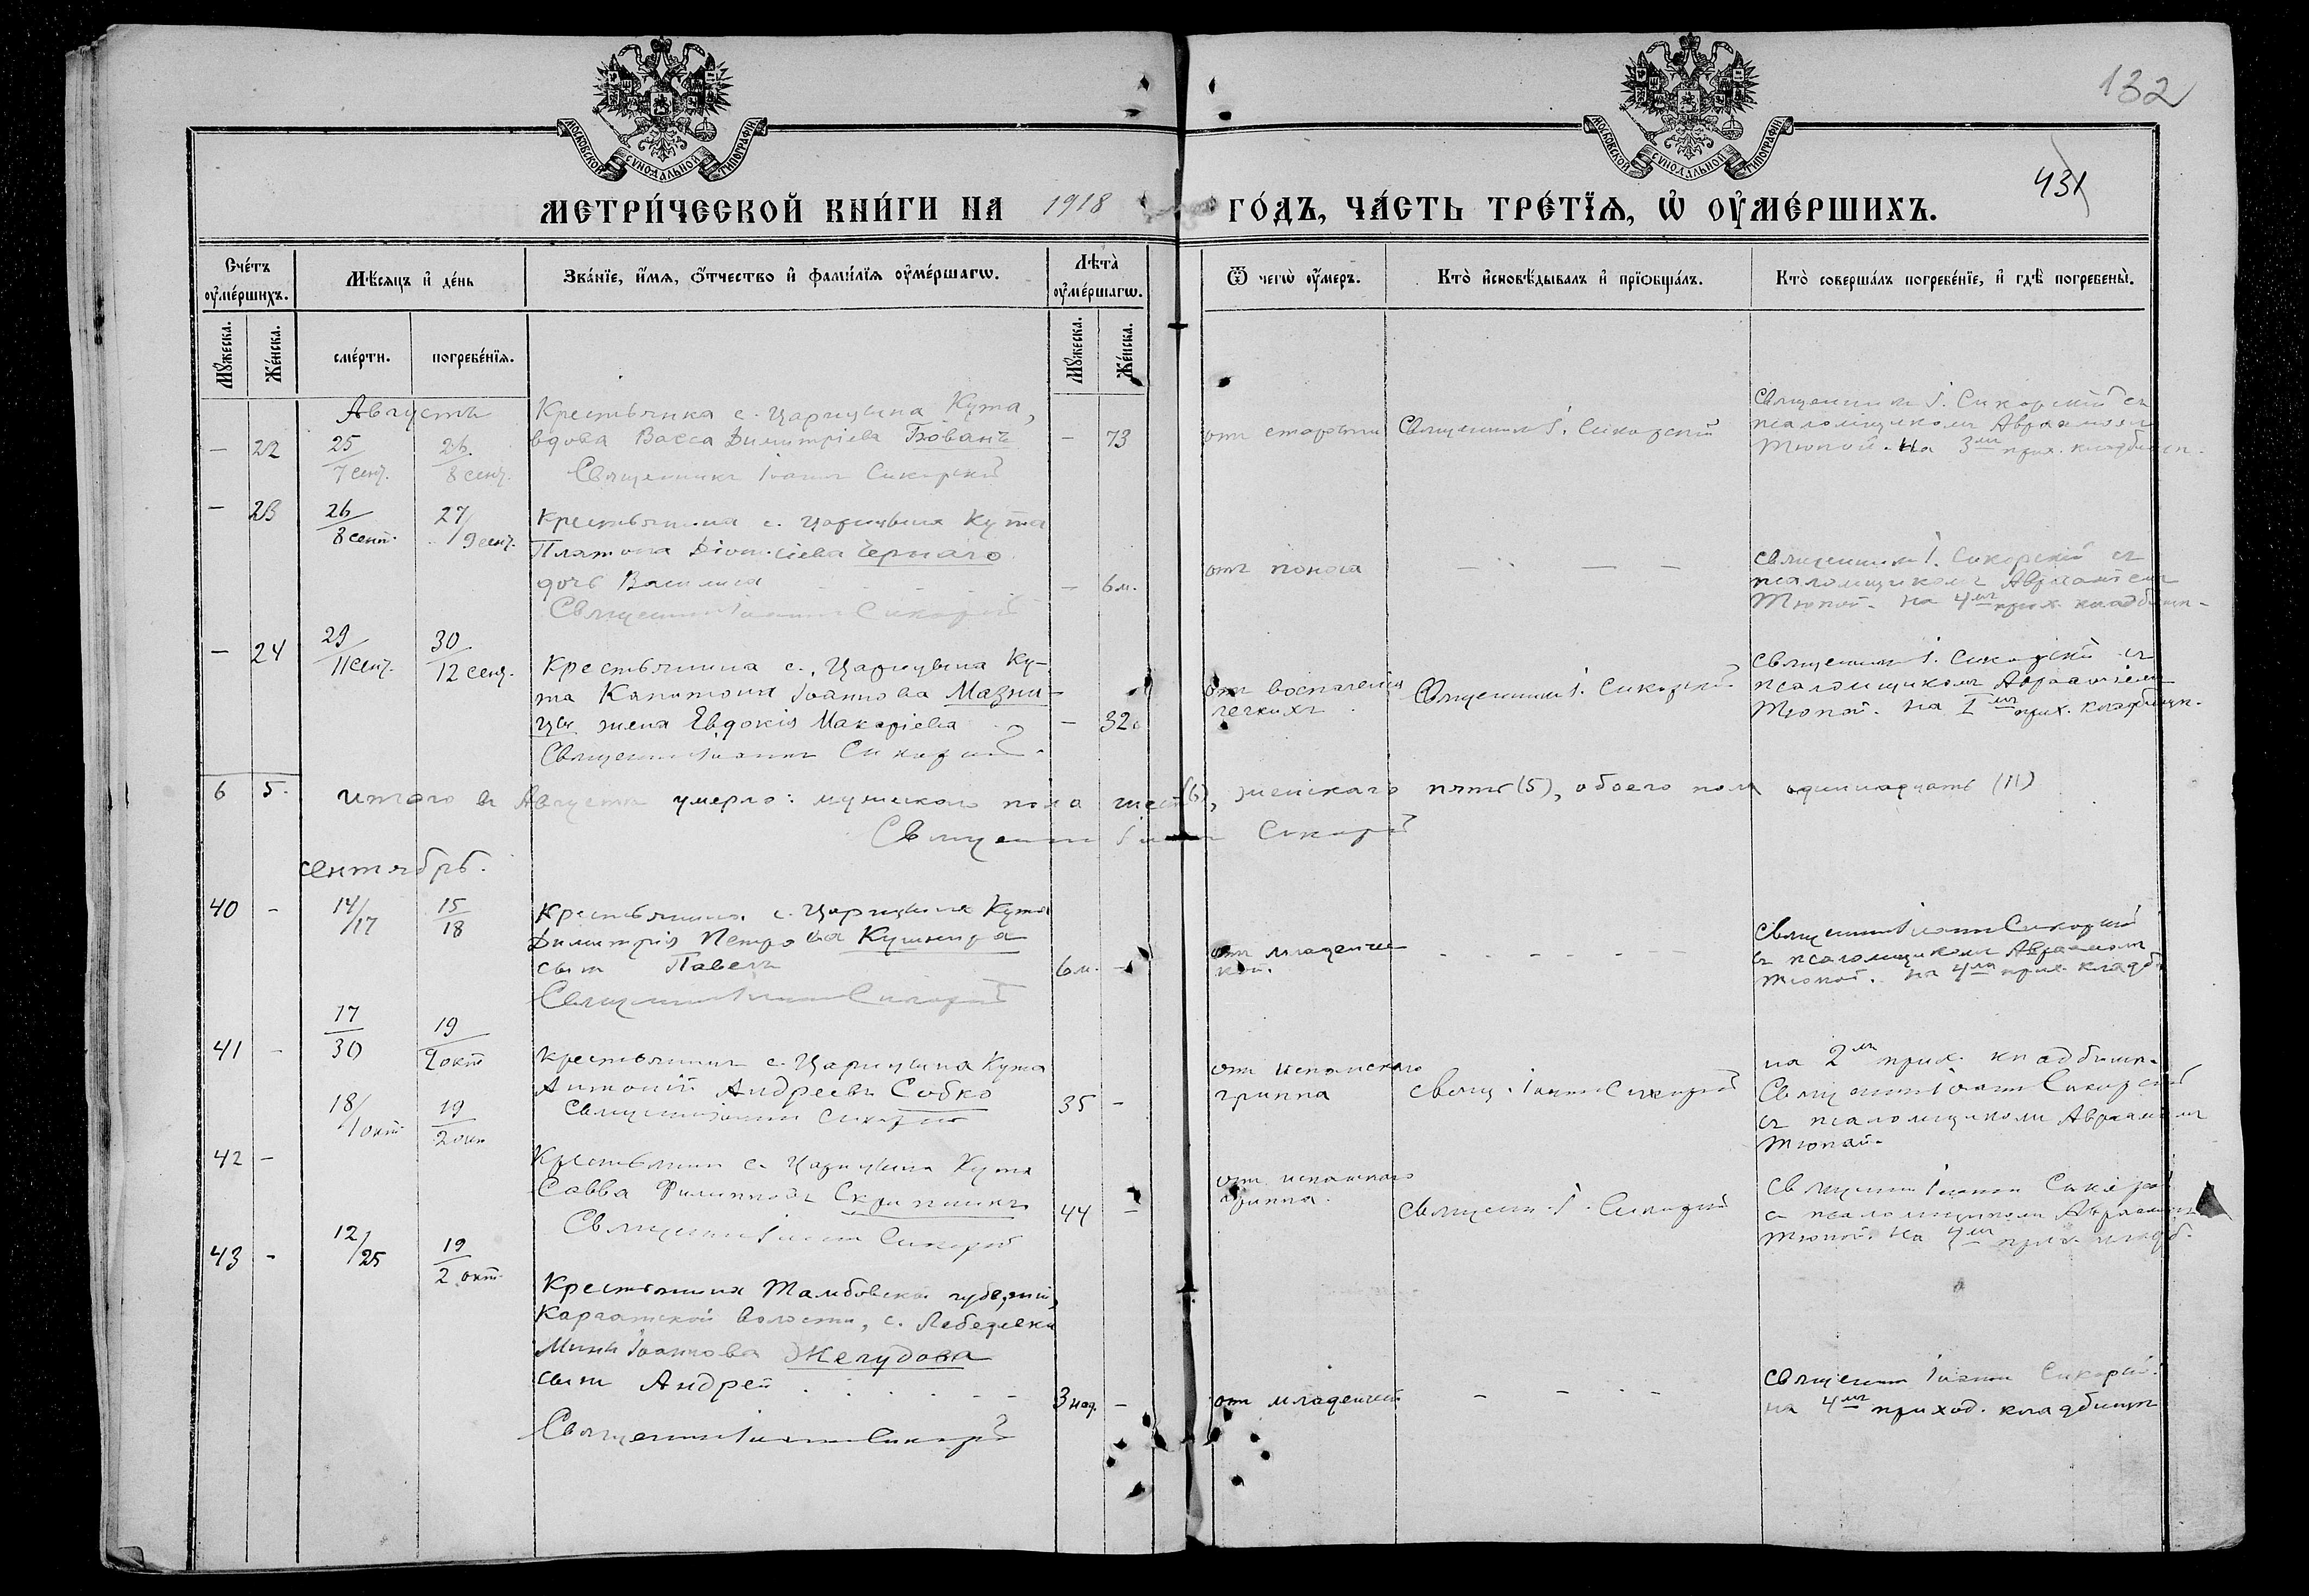 132
431
МОСКОВСКОЙ СѴНОДАЛЬНОЙ ТИПОГРАФІИ
МОСКОВСКОЙ СѴНОДАЛЬНОЙ ТИПОГРАФІИ
МЕТРИ́ЧЕСКОЙ КНИ́ГИ НА 1918 ГО́ДЪ, ЧА́СТЬ ТРЕ́ТЇѦ, Ѡ҆ ОУ҆МЕ́РШИХЪ.
Сче́тъ оу҆ме́ршихъ.
Мꙋ́жеска.
Же́нска.
Мѣ́сѧцъ и҆ де́нь
сме́рти.
погребе́нїѧ.
Зва́нїе, и҆́мѧ, ѻ҆́тчество и҆ фами́лїѧ оу҆ме́ршагѡ.
Лѣ́та оу҆ме́ршагѡ.
Мꙋ́жеска.
Же́нска.
Ѿ чегѡ̀ оу҆́меръ.
Кто̀ и҆сповѣ́дывалъ и҆ прїѡбща́лъ.
Кто̀ соверша́лъ погребе́нїе, и҆ гдѣ̀ погребены̀.
Августъ
- 22 25/7 сент. 26./8 сент.
Крестьянка с. Царицына Кута,
вдова Васса Димитріева Бованъ
Священникъ Іоаннъ Сикорскій
- 73
отъ старости
Священникъ І. Сикорскій
Священникъ І. Сикорскій съ
псаломщикомъ Авраамомъ
Тюпой. На 3мъ прих. кладбищ.
- 23 26/8 сент. 27/9 сент.
Крестьянина с. Царицына Кута
Платона Діонисіева Чернаго
дочь Василиса
Священникъ Іоаннъ Сикорскій
- 6 м.
отъ поноса
Священникъ І. Сикорскій съ
псаломщикомъ Авраамомъ
Тюпой. На 4мъ прих. кладбищ.
- 24 29/11 сент. 30/12 сент.
Крестьянина с. Царицына Ку-
та Капитона Іоаннова Мазни-
цы жена Евдокія Макаріева
Священникъ Іоаннъ Сикорскій
- 32
отъ воспаленія
легкихъ
Священникъ І. Сикорскій
Священникъ І. Сикорскій съ
псаломщикомъ Авраамомъ
Тюпой. На 1мъ прих. кладбищ.
6 5. Итого въ Августѣ умерло: мужескаго пола шесть (6), женскаго пять (5), обоего пола одиннадцать (11)
Священникъ Іоаннъ Сикорскій
Сентябрь.
40 - 14/17 15/18
Крестьянина с. Царицына Кута
Димитрія Петрова Кушнира
сынъ Павелъ
Священникъ Іоаннъ Сикорскій
6 м. -
отъ младенче-
ской.
Священникъ Іоаннъ Сикорскій
съ псаломщикомъ Авраамомъ
Тюпой. На 4мъ прих. кладб.
41 - 17/30 19/2 окт
Крестьянинъ с. Царицына Кута
Антоній Андреевъ Собко
Священникъ Іоаннъ Сикорскій
35 -
отъ испанскаго
гриппа
Свящ. Іоаннъ Сикорскій
на 2мъ прих. кладбищ.
Священникъ Іоаннъ Сикорскій
съ псаломщикомъ Авраамомъ
Тюпой.
42 - 18/1 окт. 19/2 окт
Крестьянинъ с. Царицына Кута
Савва Филипповъ Скрипникъ
Священникъ Іоаннъ Сикорскій
44 -
отъ испанскаго
гриппа.
Священ. І. Сикорскій
Священникъ Іоаннъ Сикорскій
съ псаломщикомъ Авраамомъ
Тюпой. На 4мъ прих. кладб.
43 - 12/25 19/2 окт.
Крестьянина Тамбовской губерніи,
волости, с. Лебедевки
Мины Іоаннова Желудова
сынъ Андрей
Священникъ Іоаннъ Сикорскій
3 нед. -
отъ младенческой
Священникъ Іоаннъ Сикорскій.
на 4мъ приход. кладбищѣ